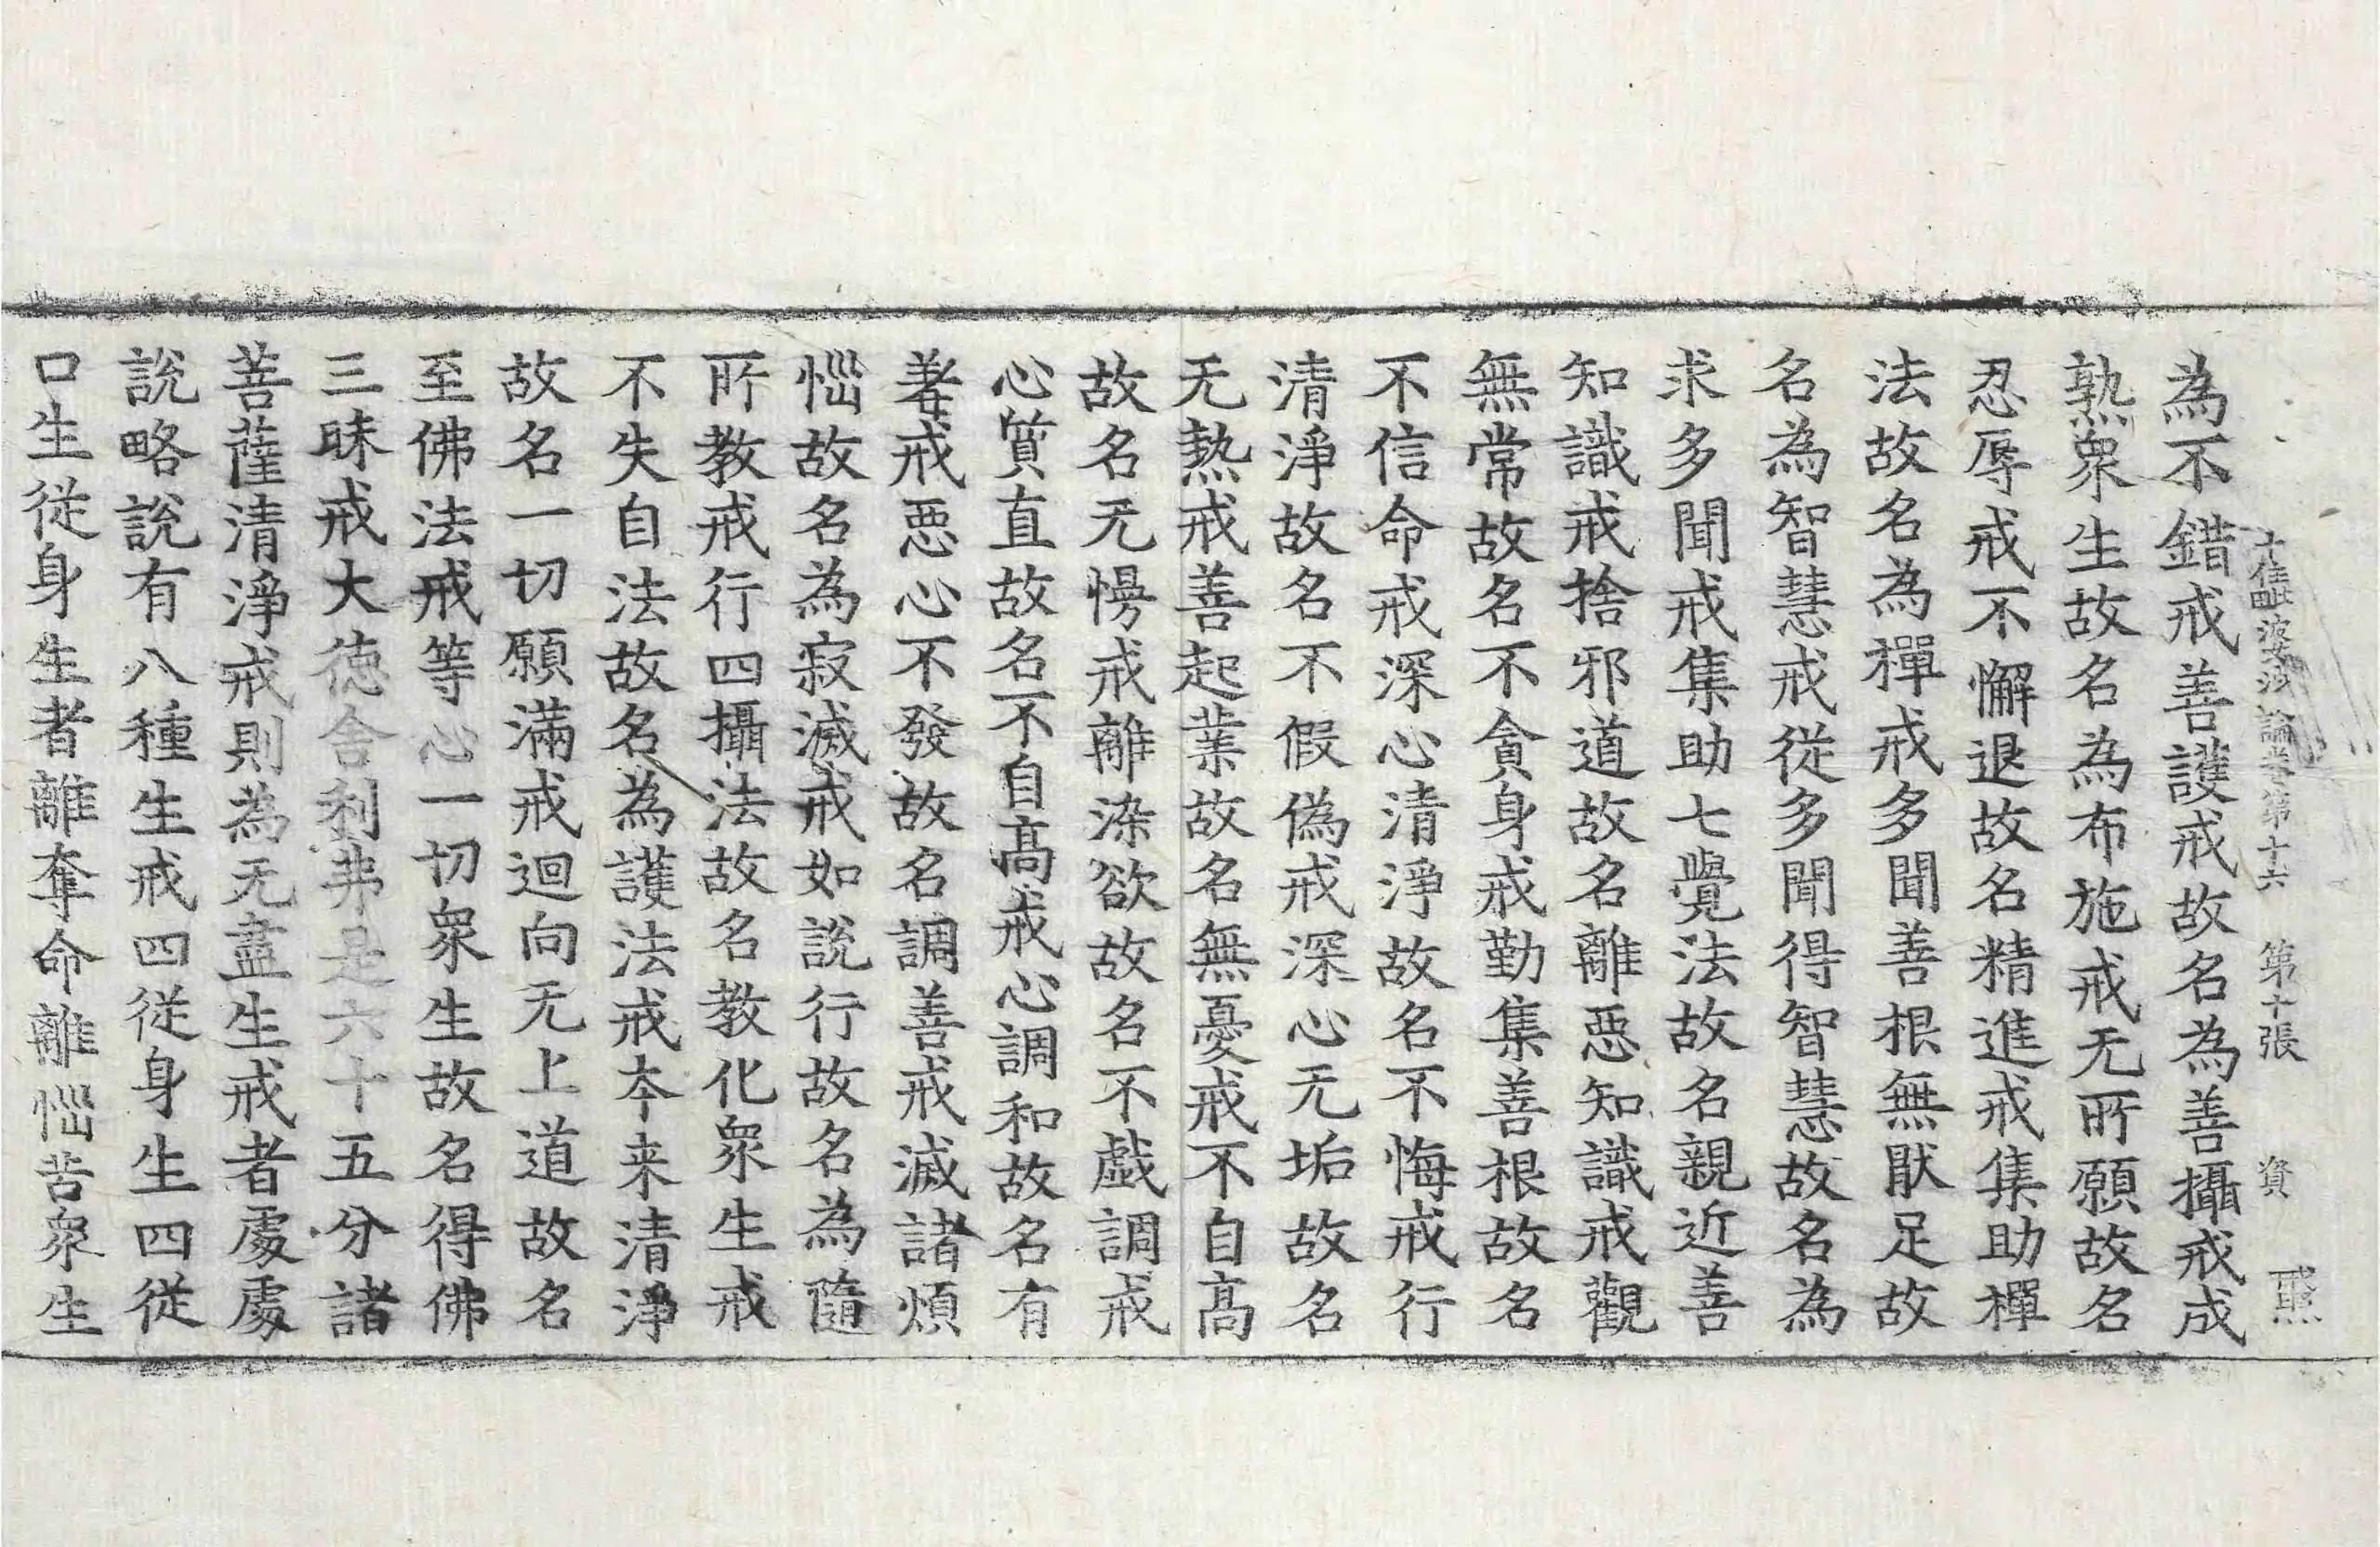 十住毗婆沙論卷第十六　第十張　資
為不錯戒善護戒故名為善攝戒成
熟衆生故名為布施戒无所願故名
忍辱戒不懈退故名精進戒集助禪
法故名為禪戒多聞善根無猒足故
名為智慧戒從多聞得智慧故名為
求多聞戒集助七覺法故名親近善
知識戒捨邪道故名離惡知識戒觀
無常故名不貪身戒勤集善根故名
不信命戒深心清淨故名不悔戒行
清淨故名不假偽戒深心无垢故名
无熱戒善起業故名無憂戒不自高
故名无慢戒離染欲故名不戲調戒
心質直故名不自高戒心調和故名有
羞戒惡心不發故名調善戒滅諸煩
惱故名為寂滅戒如說行故名為隨
所教戒行四攝法故名教化衆生戒
不失自法故名為護法戒本来清淨
故名一切願滿戒迴向无上道故名
至佛法戒等心一切衆生故名得佛
三昧戒大德舍利弗是六十五分諸
菩薩清淨戒則為无盡生戒者處處
說略說有八種生戒四從身生四從
口生從身生者離奪命離惱苦衆生